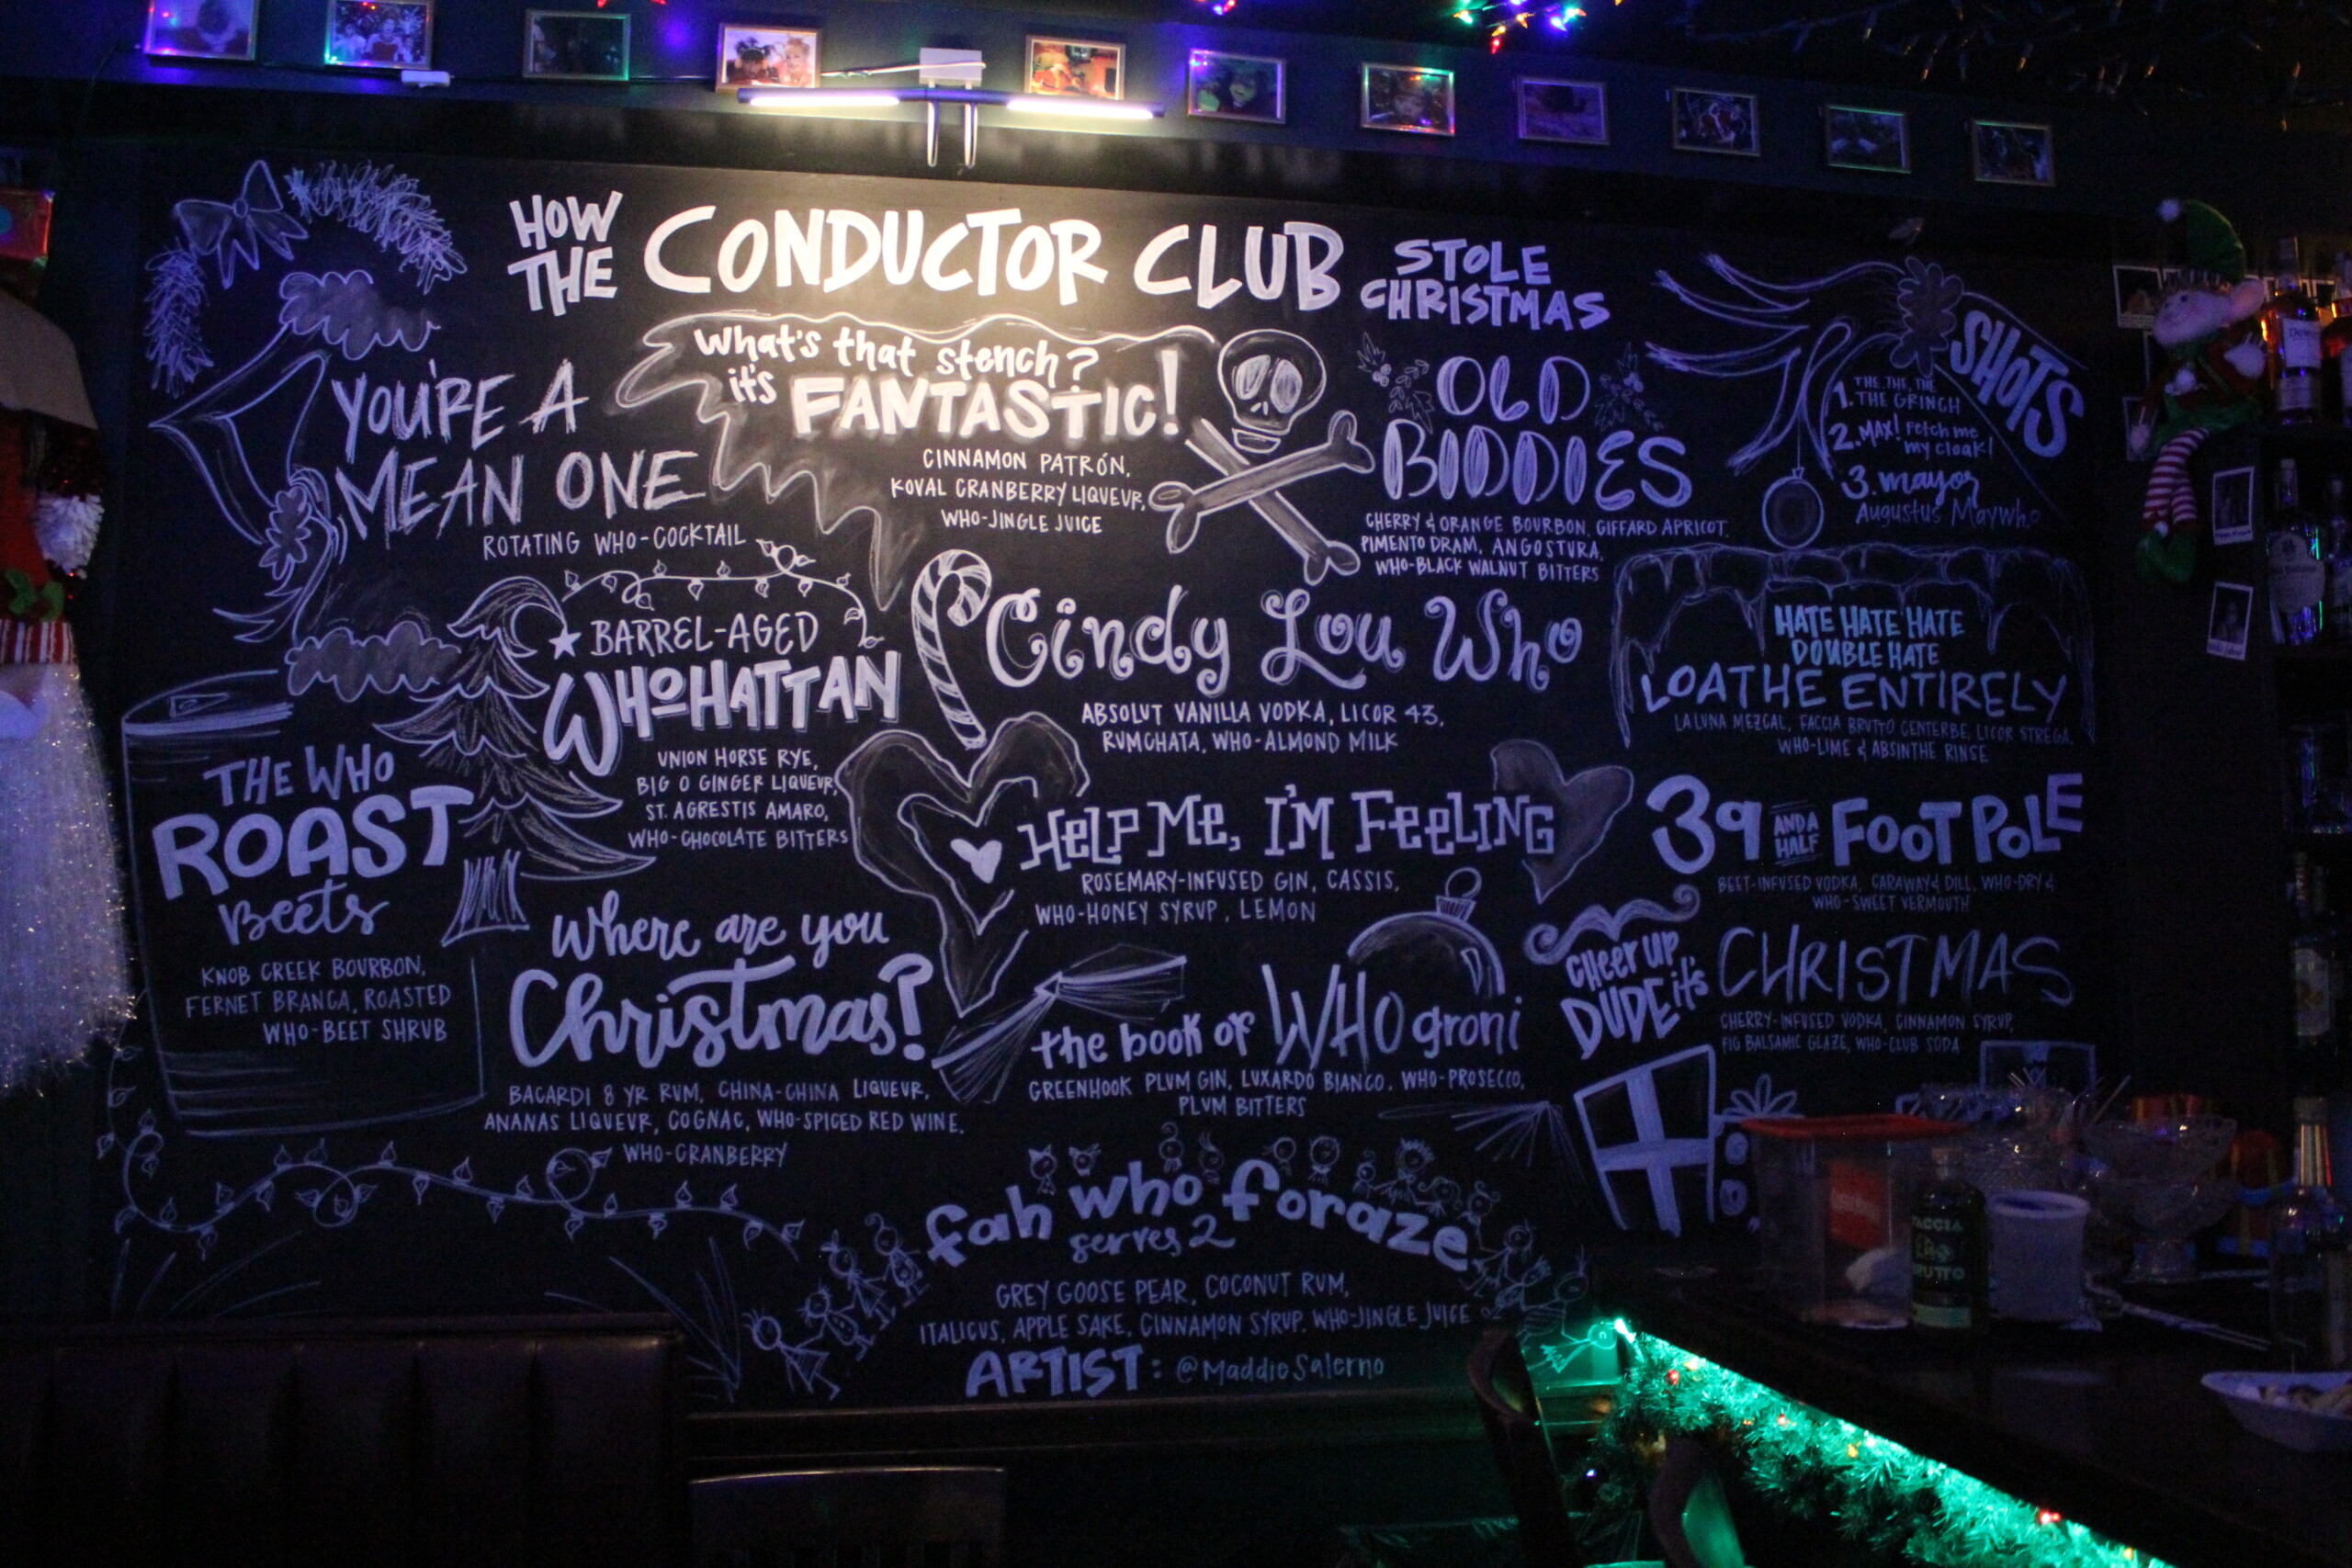 HOW THE CONDUCTOR CLUB STOLE CHRISTMAS
YOU'RE A
MEAN ONE
ROTATING WHO-COCKTAIL
What's that stench?
it's FANTASTIC!
CINNAMON PATRÓN,
KOVAL CRANBERRY LIQUEUR,
WHO-JINGLE JUICE
OLD
BIDDIES
CHERRY & ORANGE BOURBON, GIFFARD APRICOT,
PIMENTO DRAM, ANGOSTURA,
WHO-BLACK WALNUT BITTERS
SHOTS
1. THE, THE, THE
THE GRINCH
2. MAX! Fetch me
my cloak!
3. mayor
Augustus Maywho
BARREL-AGED
WHOHATTAN
UNION HORSE RYE,
BIG O GINGER LIQUEUR,
ST. AGRESTIS AMARO,
WHO-CHOCOLATE BITTERS
Cindy Lou Who
ABSOLUT VANILLA VODKA, LICOR 43,
RUMCHATA, WHO-ALMOND MILK
HATE HATE HATE
DOUBLE HATE
LOATHE ENTIRELY
LA LUNA MEZCAL, FACCIA BRUTTO CENTERBE, LICOR STREGA,
WHO-LIME & ABSINTHE RINSE
THE WHO
ROAST
Beets
KNOB CREEK BOURBON,
FERNET BRANCA, ROASTED
WHO-BEET SHRUB
HELP ME, I'M FEELING
ROSEMARY-INFUSED GIN, CASSIS,
WHO-HONEY SYRUP, LEMON
39 AND A HALF FOOT POLE
BEET-INFUSED VODKA, CARAWAY & DILL, WHO-DRY &
WHO-SWEET VERMOUTH
Where are you
Christmas?
BACARDI 8 YR RUM, CHINA-CHINA LIQUEUR,
ANANAS LIQUEUR, COGNAC, WHO-SPICED RED WINE,
WHO-CRANBERRY
the book of WHOgroni
GREENHOOK PLUM GIN, LUXARDO BIANCO, WHO-PROSECCO,
PLUM BITTERS
CHEER UP,
DUDE it's CHRISTMAS
CHERRY-INFUSED VODKA, CINNAMON SYRUP,
FIG BALSAMIC GLAZE, WHO-CLUB SODA
fah who foraze
serves 2
GREY GOOSE PEAR, COCONUT RUM,
ITALICUS, APPLE SAKE, CINNAMON SYRUP, WHO-JINGLE JUICE
ARTIST: @MaddieSalerno
FACCIA
BRUTTO